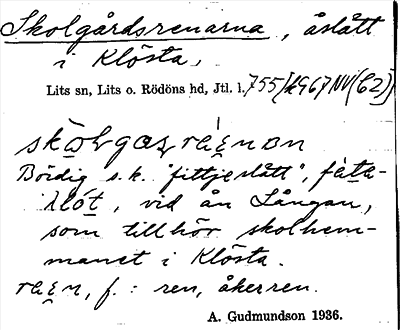 Skolgårdsrenarna, åslått
i Klösta,
Lits sn, Lits o. Rödöns hd, Jtl. l. 755/1967 NV(C2)
Bördig s.k. "fittjeslått",
slót, vid ån Långan,
som tillhör skolhem-
manet i Klösta.
f. : ren, åkerren.
A. Gudmundson 1936.